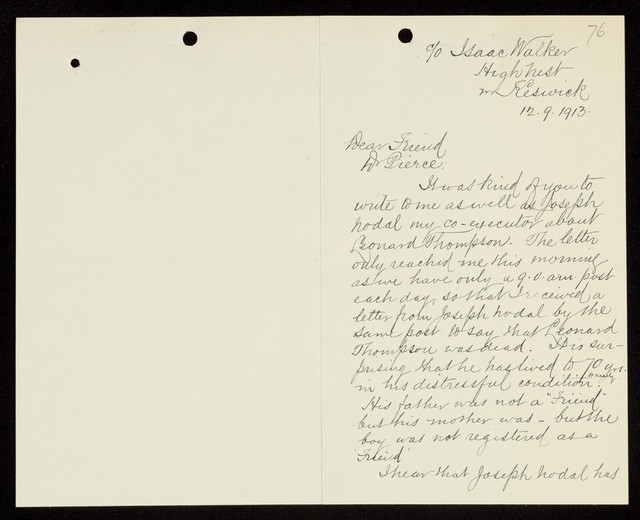 76
c/o Isaac Walker
High Nest
nr Keswick
12.9.1913.
Dear Friend
Dr Pierce,
It was kind of you to
write to me as well as Joseph
Nodal my co-executor about
Leonard Thompson. The letter
only reached me this morning
as we have only a 9.0 a.m. post
each day, so that I received a
letter from Joseph Nodal by the
same post to say that Leonard
Thompson was dead. It is sur-
prising that he has lived to 70 yrs.
in his distressful condition
His father was not a "Friend"
but his mother was - but the
boy was not registered as a
"Friend".
I hear that Joseph Nodal has